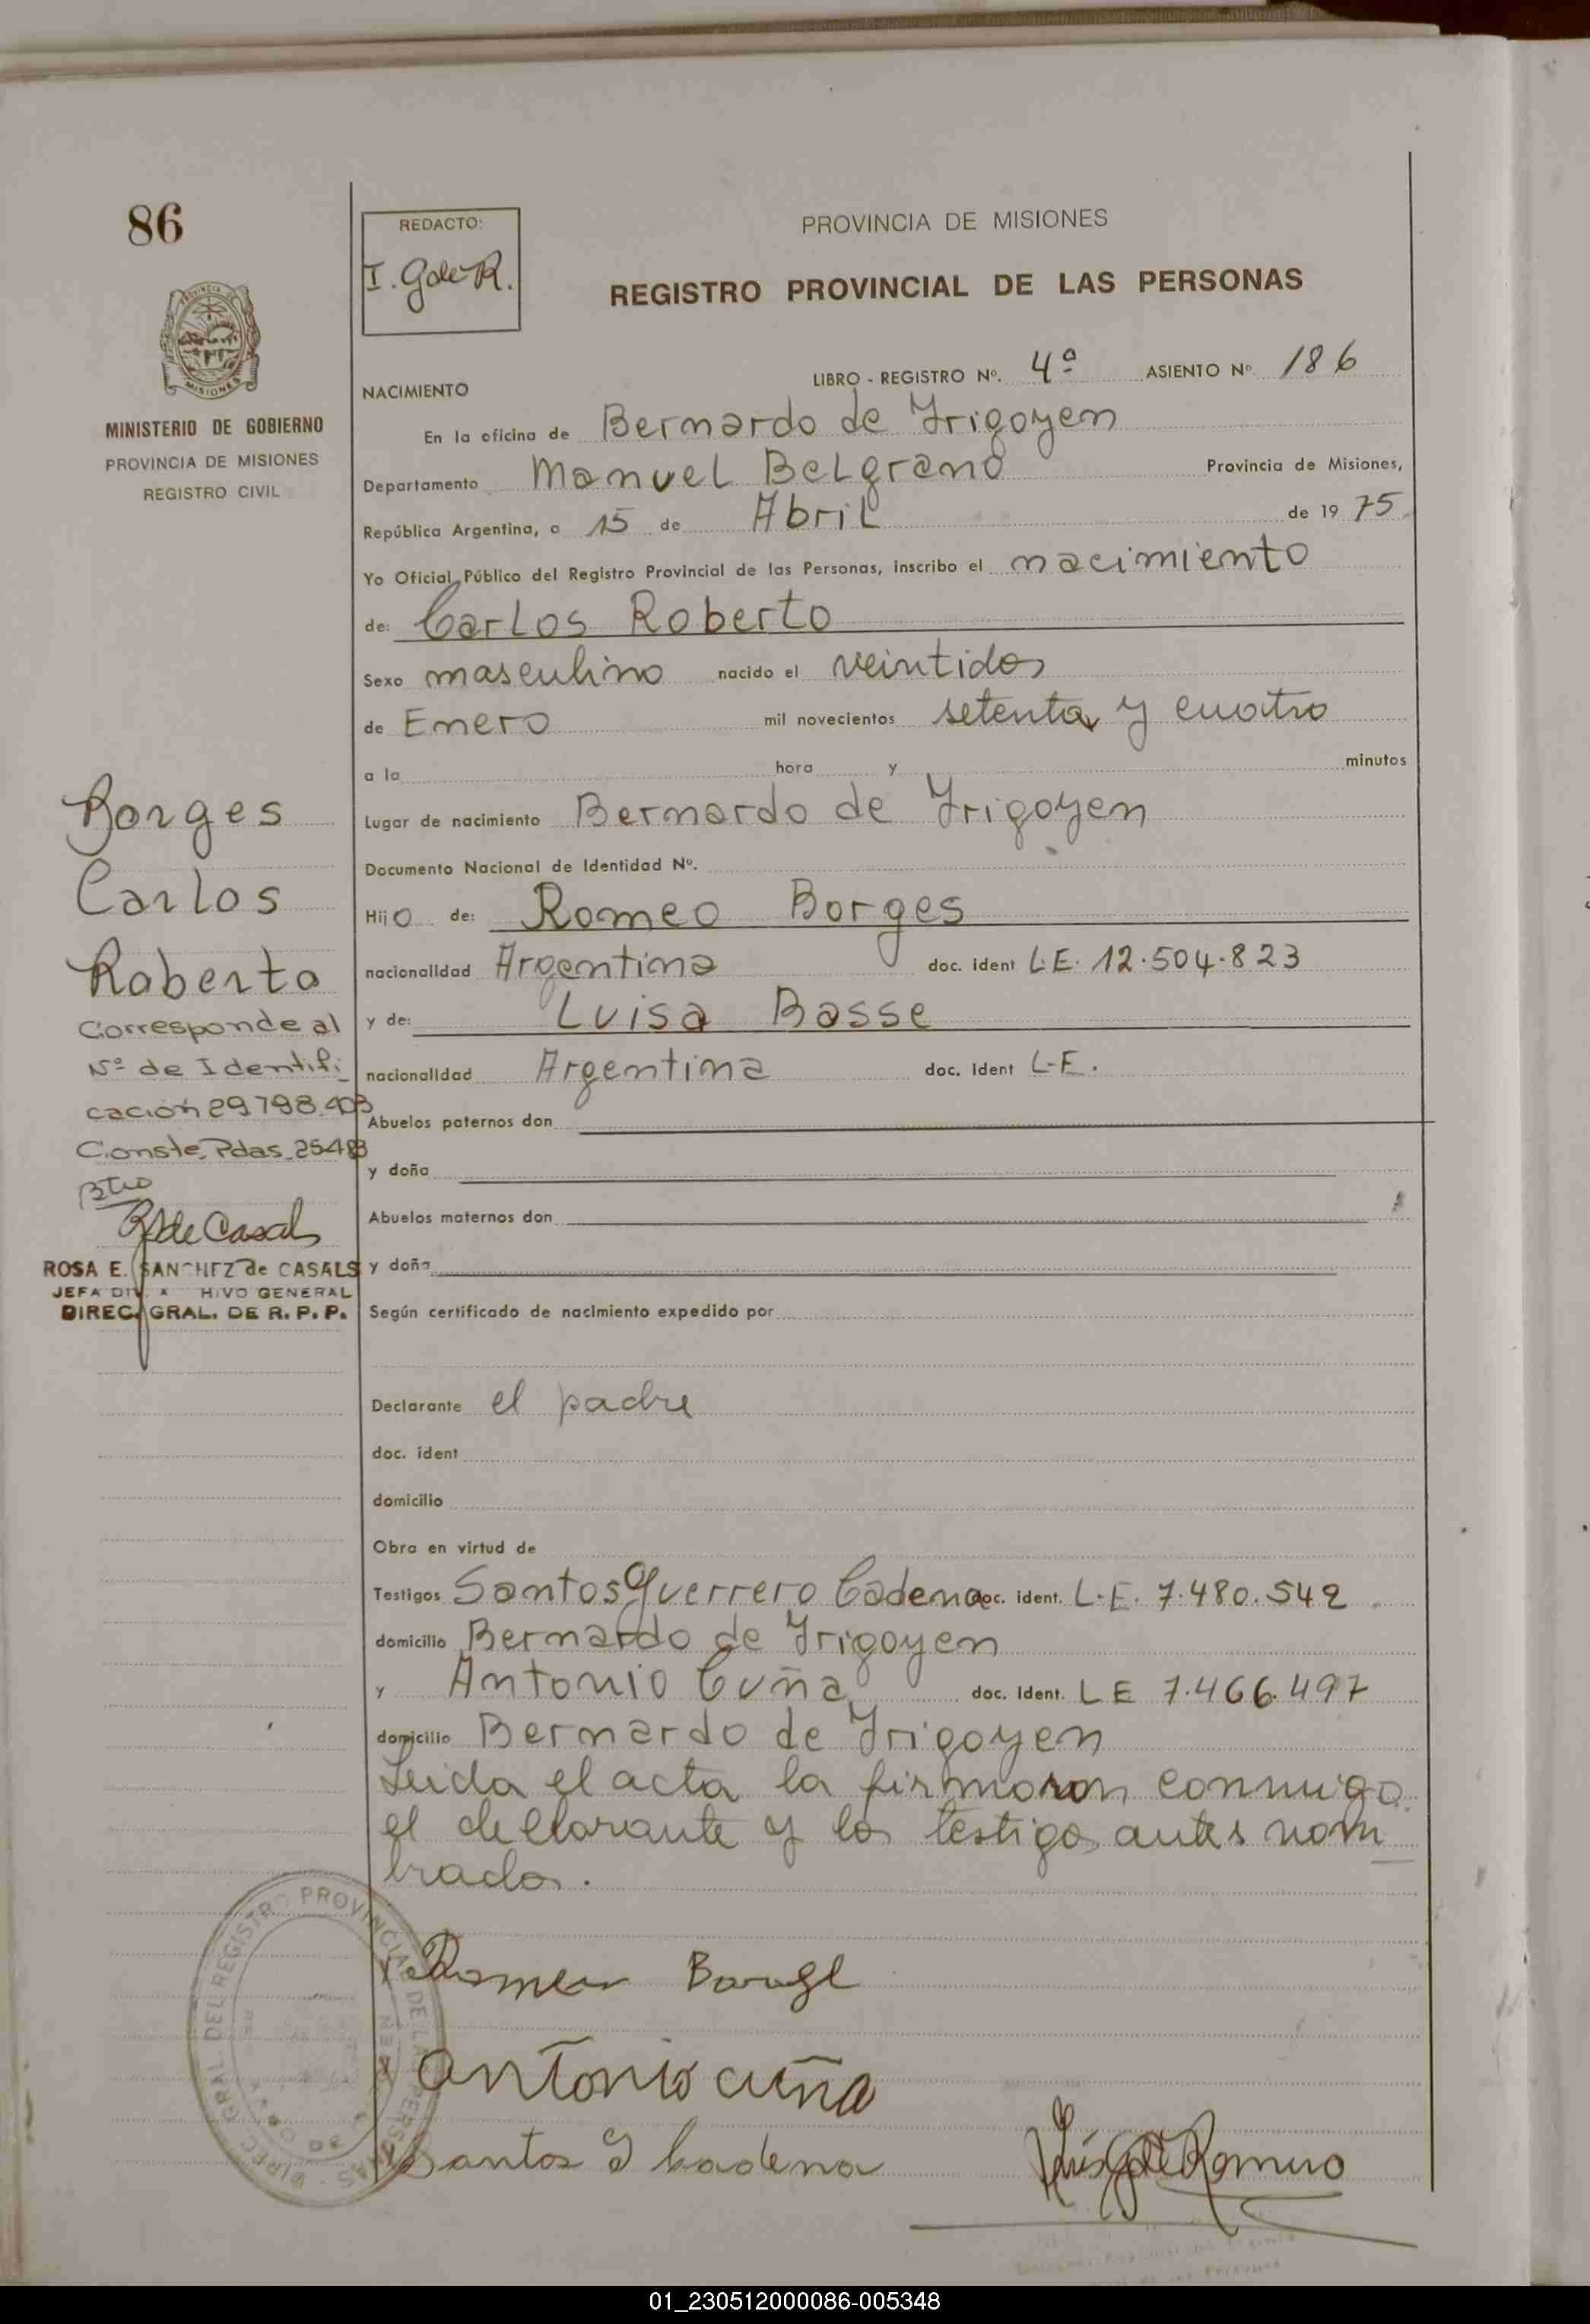 86
MINISTERIO DE GOBIERNO
PROVINCIA DE MISIONES
REGISTRO CIVIL
REDACTO:
I. G de R.
PROVINCIA DE MISIONES
REGISTRO PROVINCIAL DE LAS PERSONAS
NACIMIENTO LIBRO - REGISTRO Nº. 4º ASIENTO Nº 186
En la oficina de Bernardo de Yrigoyen
Departamento Manuel Belgrano Provincia de Misiones,
República Argentina, a 15 de Abril de 19 75
Yo Oficial Público del Registro Provincial de las Personas, inscribo el nacimiento
de: Carlos Roberto
Sexo masculino nacido el veintidos
de Enero mil novecientos setenta y cuatro
a la hora y minutos
Lugar de nacimiento Bernardo de Yrigoyen
Documento Nacional de Identidad Nº.
Hijo de: Romeo Borges
nacionalidad Argentina doc. ident L.E. 12.504.823
y de: Luisa Basse
nacionalidad Argentina doc. ident L.E.
Abuelos paternos don
y doña
Abuelos maternos don
y doña
Según certificado de nacimiento expedido por
Declarante el padre
doc. ident
domicilio
Obra en virtud de
Testigos Santos Guerrero Cadena doc. ident. L.E. 7.480.542
domicilio Bernardo de Yrigoyen
y Antonio Cuña doc. ident. LE 7.466.497
domicilio Bernardo de Yrigoyen
Leida el acta la firmaron conmigo
el declarante y los testigos antes nom
brados.
Borges
Carlos
Roberto
Corresponde al
Nº de Identifi
cación 29.798.403
Conste. Pdas. 25483
R S de Casals
ROSA E. SANCHEZ de CASALS
JEFA DIV. A HIVO GENERAL
DIREC. GRAL. DE R. P. P.
Romeu Borge
Antonio cuña
Santos G Cadena
DIREC. GRAL. DEL REGISTRO PROVINCIAL DE LAS PERSONAS
01_230512000086-005348